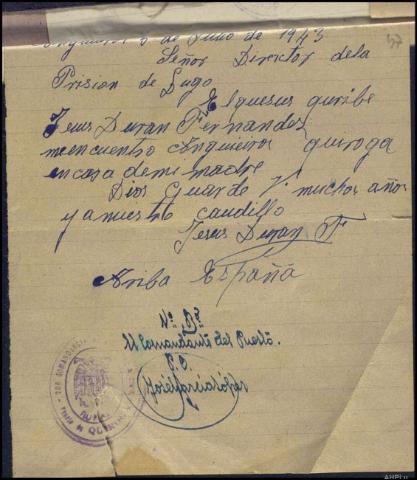 5 de Julio de 1943
57
Señor Director dela
Prision de Lugo
Elquesus quribe
Jesus Duran Fernandez
meencuentro enquieiros quiroga
encasa demi madre
Dios Guarde V. muchos años
y anuestro caudillo
Jesus Duran F
Ariba España
Nº Bº
El Comandante del Puesto.
P.O.
José Garcia López